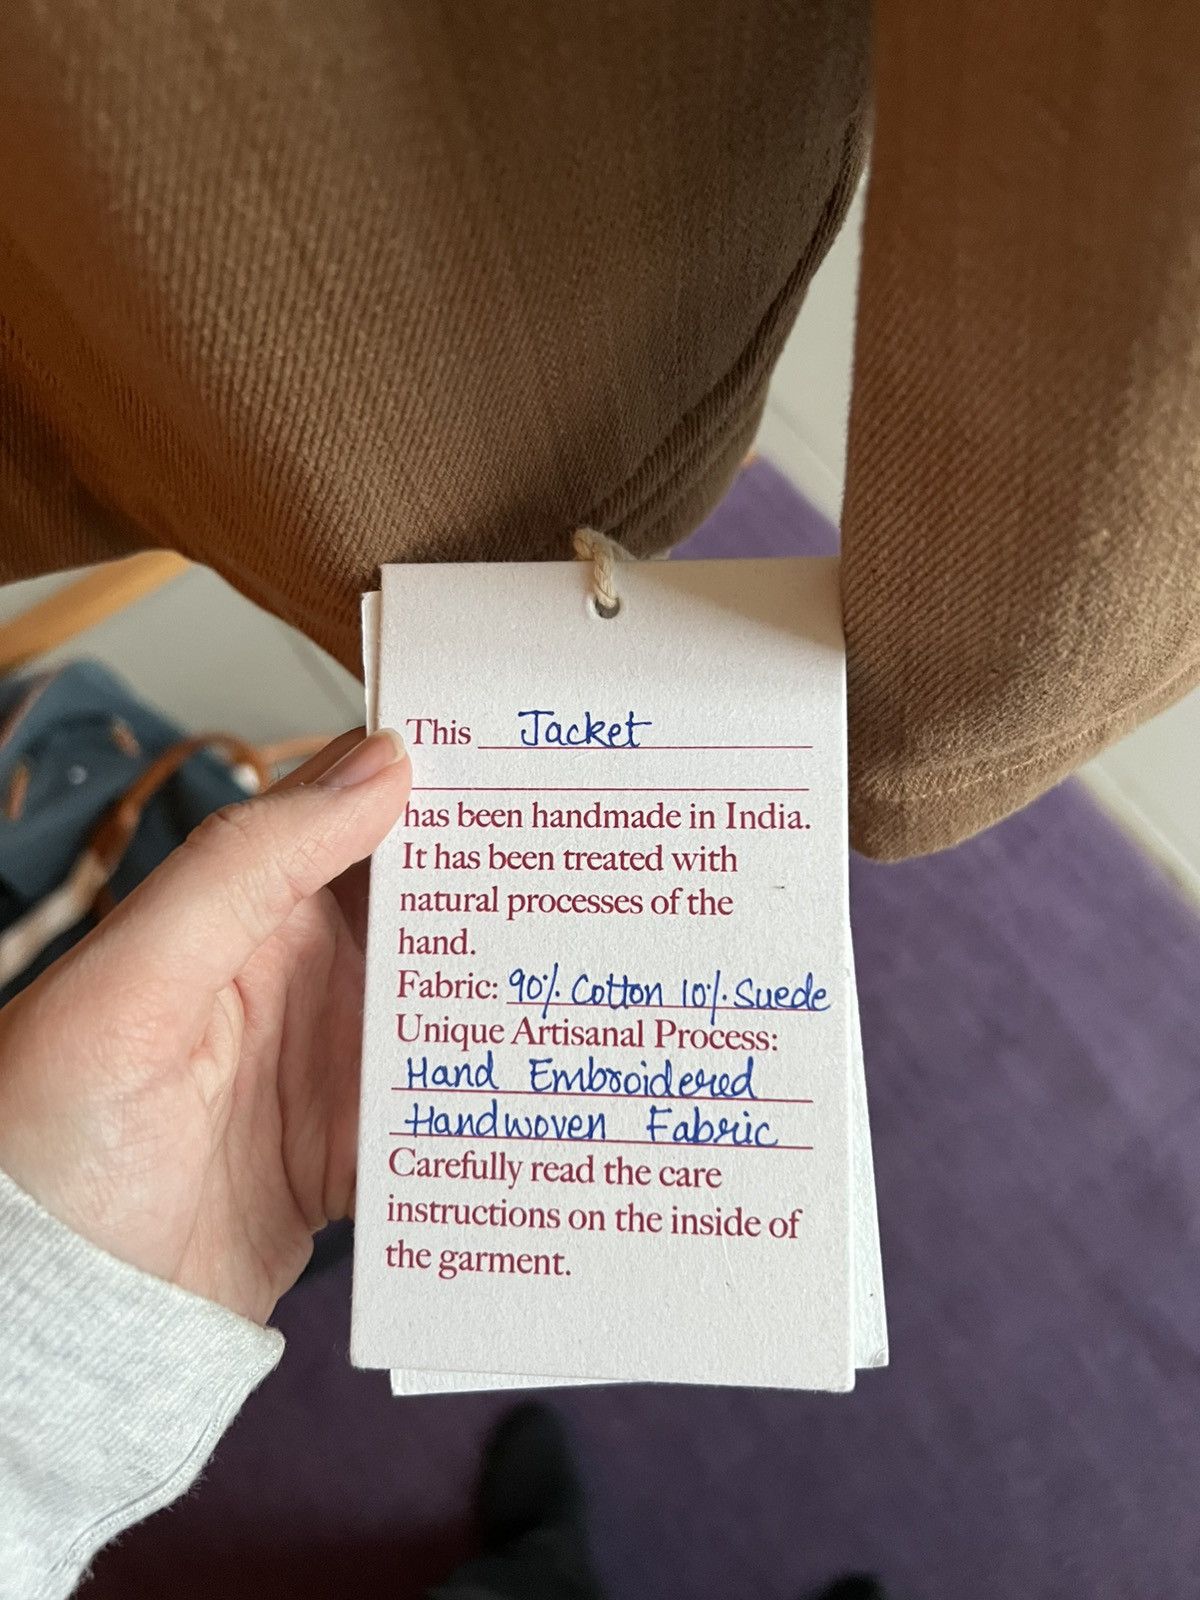 This Jacket
has been handmade in India.
It has been treated with
natural processes of the
hand.
Fabric: 90% Cotton 10% Suede
Unique Artisanal Process:
Hand Embroidered
Handwoven Fabric
Carefully read the care
instructions on the inside of
the garment.